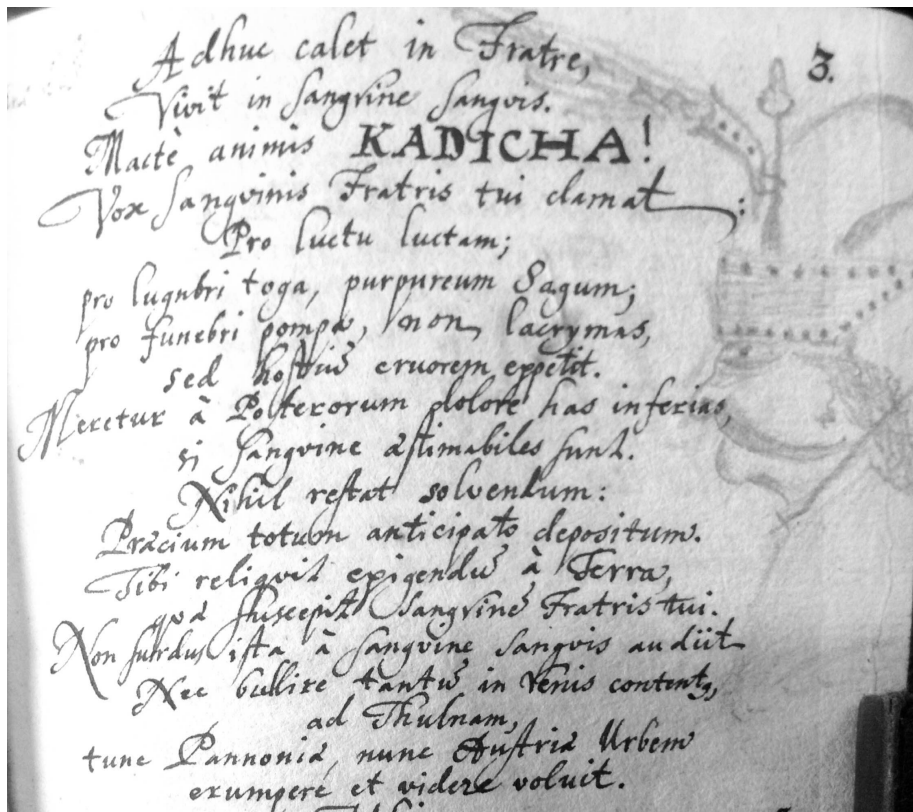 Adhuc calet in Fratre,
3.
Vivit in sangvine sangvis.
Mactè animis KADICHA!
Vox sangvinis Fratris tui clamat:
Pro luctu luctam;
pro lugubri toga, purpureum Sagum;
pro funebri pompa, non lacrymas,
sed hostiũ cruorem expetit.
Meretur à Posterorum dolore has inferias,
si sangvine æstimabiles sunt.
Nihil restat solvendum:
Præcium totum anticipato depositum.
Tibi reliquit exigendũ à Terra,
quæ suscepit sangvinẽ Fratris tui.
Non surdus ista à sangvine sangvis audiit
Nec bullire tantũ in venis content9,
ad Thulnam,
tunc Pannoniæ, nunc Austriæ Urbem
erumpere et videre voluit.